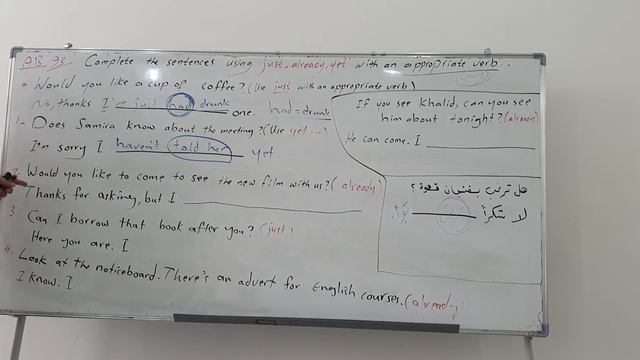 AB 98 Complete the sentences using just, already, yet with an appropriate verb.
Would you like a cup of coffee? (Use just with an appropriate verb)
No, thanks I've just had drunk one. had = drunk
1- Does Samira know about the meeting? (Use yet ...)
I'm sorry I haven't told her yet
2. Would you like to come to see the new film with us? (already)
Thanks for asking, but I
3. Can I borrow that book after you? (just)
Here you are. I
4. Look at the noticeboard. There's an advert for English courses. (already)
I know. I
If you see Khalid, can you see
him about tonight? (already)
He can come. I
هل ترغب بفنجان قهوة ؟
لا شكراً